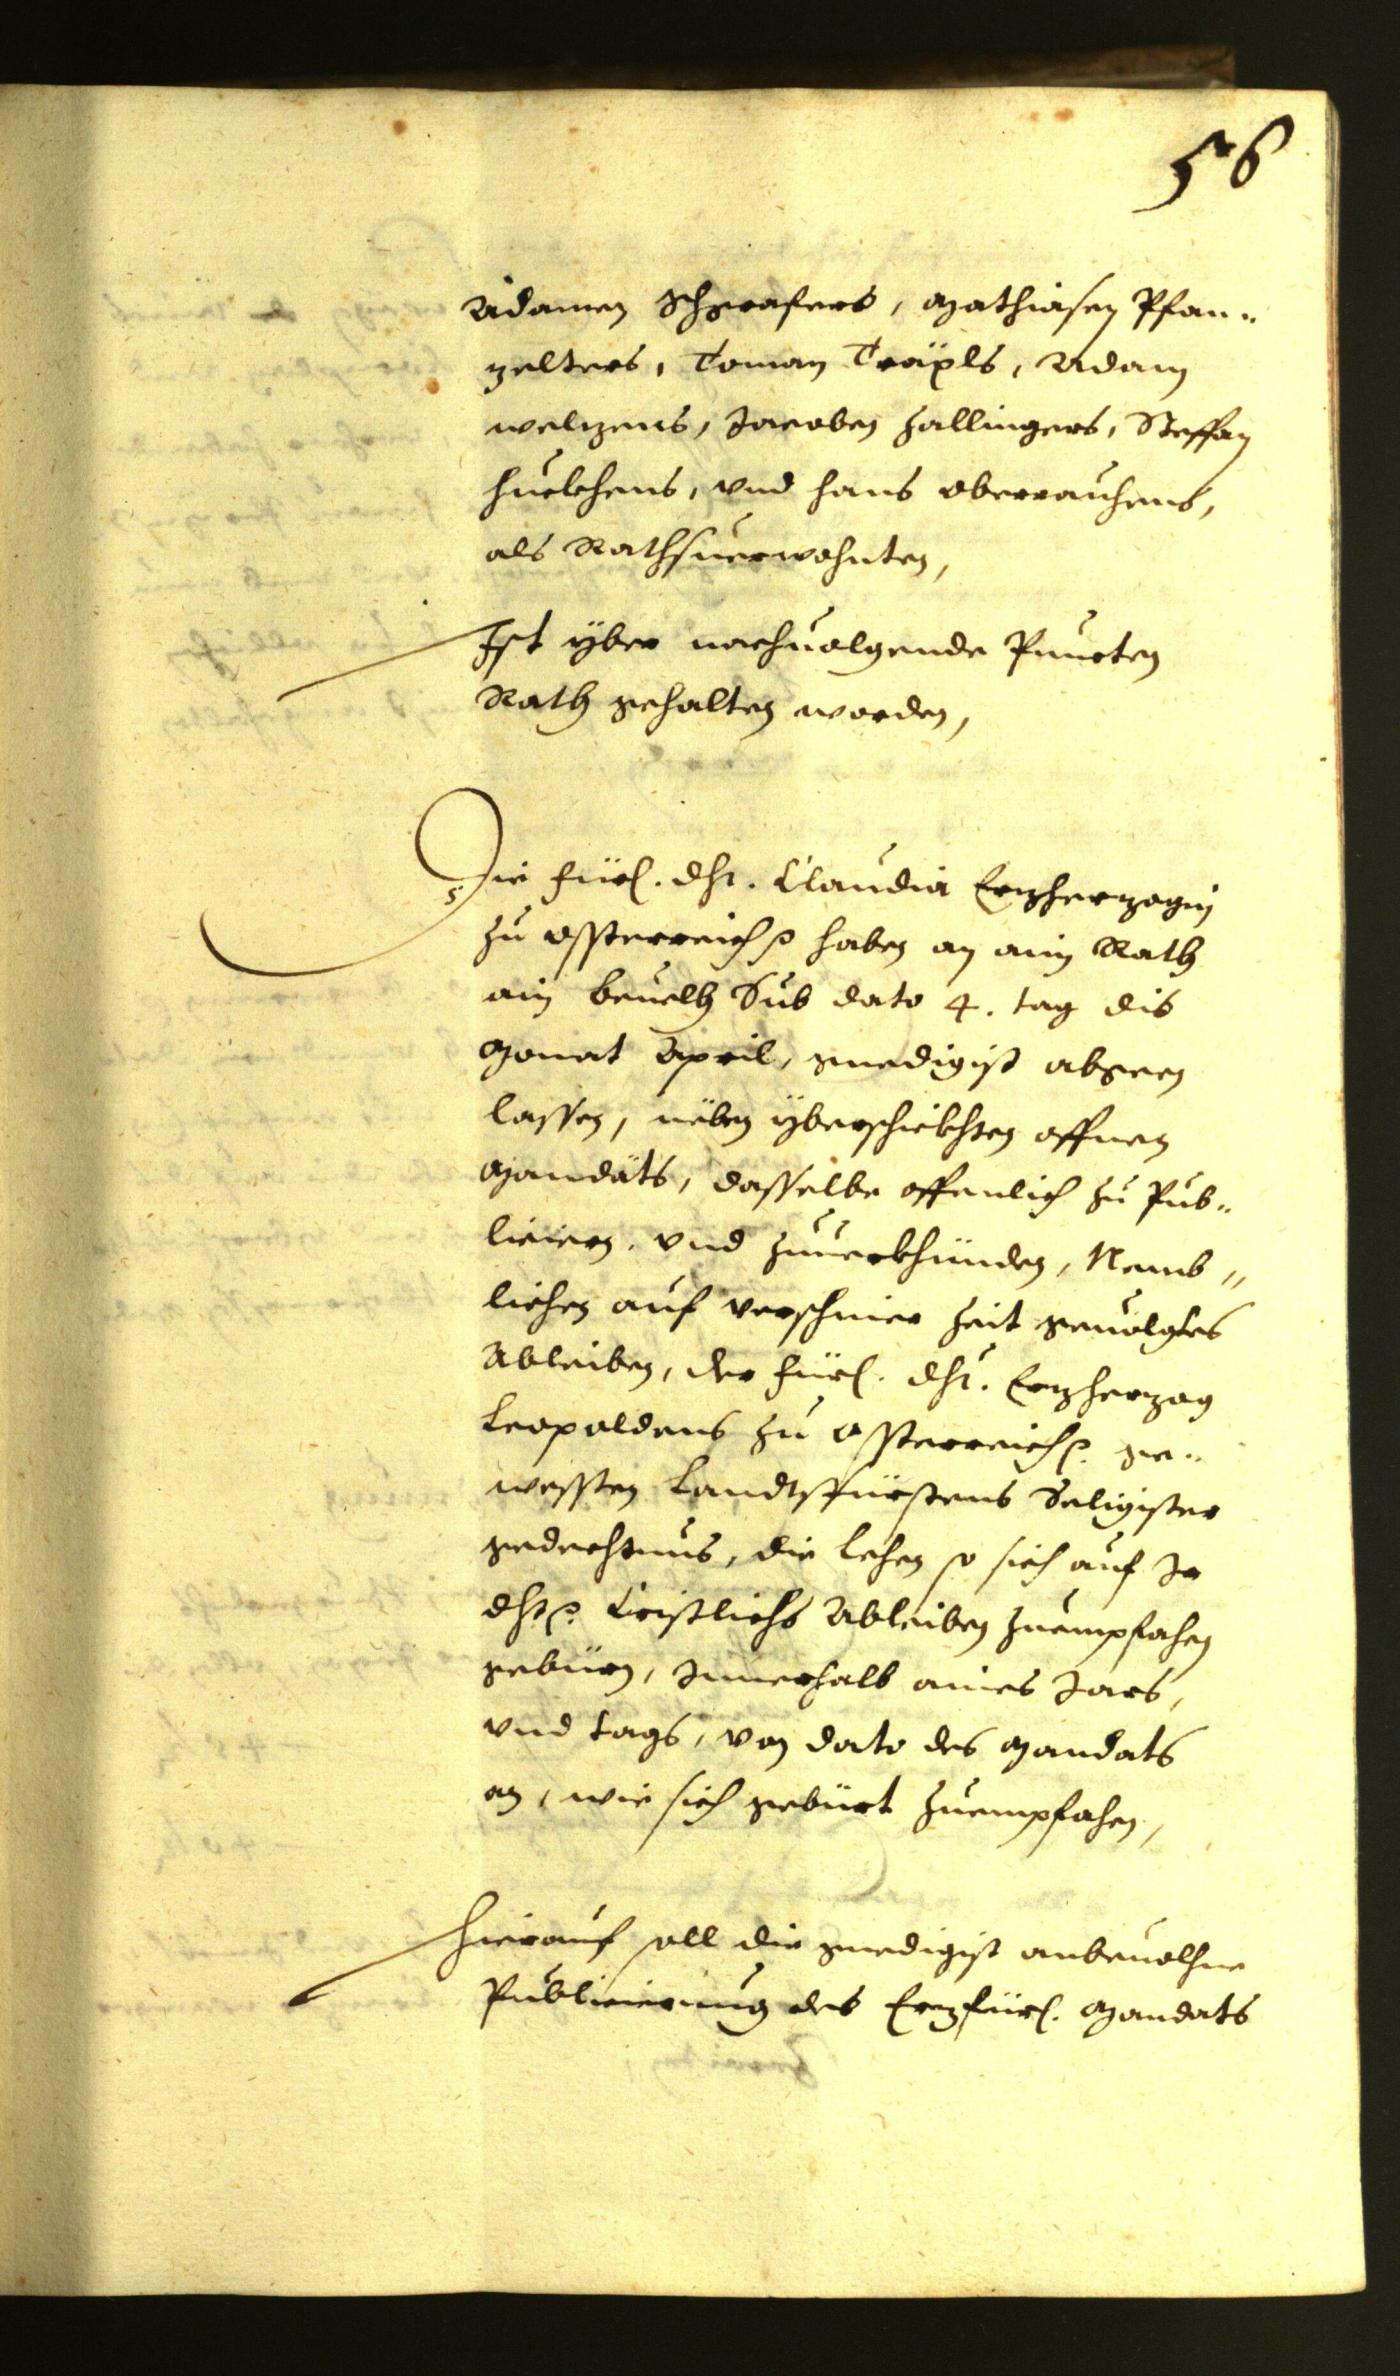 56
Adamen Schgrafers, Mathiasen Pfan„
zelters, Toman Träxls, Adam
welzens, Jacoben Zallingers, Steffan
Huebhens, vnd Hans oberrauhens,
als Rathsuerwohnten,
Ist yber nachuolgende Puncten
Rath gehalten worden,
Die Fürl. Dht. Claudia Erzherzogin
zu Össterreich ꝛc haben an ain Rath
ain beuelh Sub dato 4. tag dis
Monat April, gnedigist abgeen
lassen, neben yberschickhten offnen
Mandats, dasselbe offenlich zu Pub„
liciern, vnd zuuerkhünden, Nemb„
lichen auf verschiner zeit geuolgtes
Ableiben, der Fürl. Dht. Erzherzog
Leopoldens zu Össterreich ꝛc. ge„
wessten Landtsfürstens Seligister
gedechtnus, die Lehen so sich auf Ir
Dht ꝛc. Cristlichs Ableiben zuempfahen
gebürn, Innerhalb aines Jars,
vnd tags, von dato des Mandats
an, wie sich gebürt zuempfahen,
Hierauf soll die gnedigist anbeuolhne
Publicierung des Erzfürl. Mandats